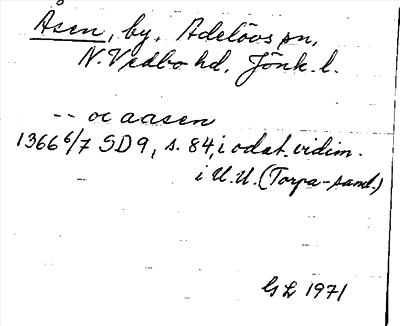 Åsen, by, Adelövs sn,
N. Vedbo hd, Jönk. l.
-- oc aasen
1366 6/7 SD 9, s. 84, i odat. vidim.
i U.U. (Torpa-saml.)
GL 1971